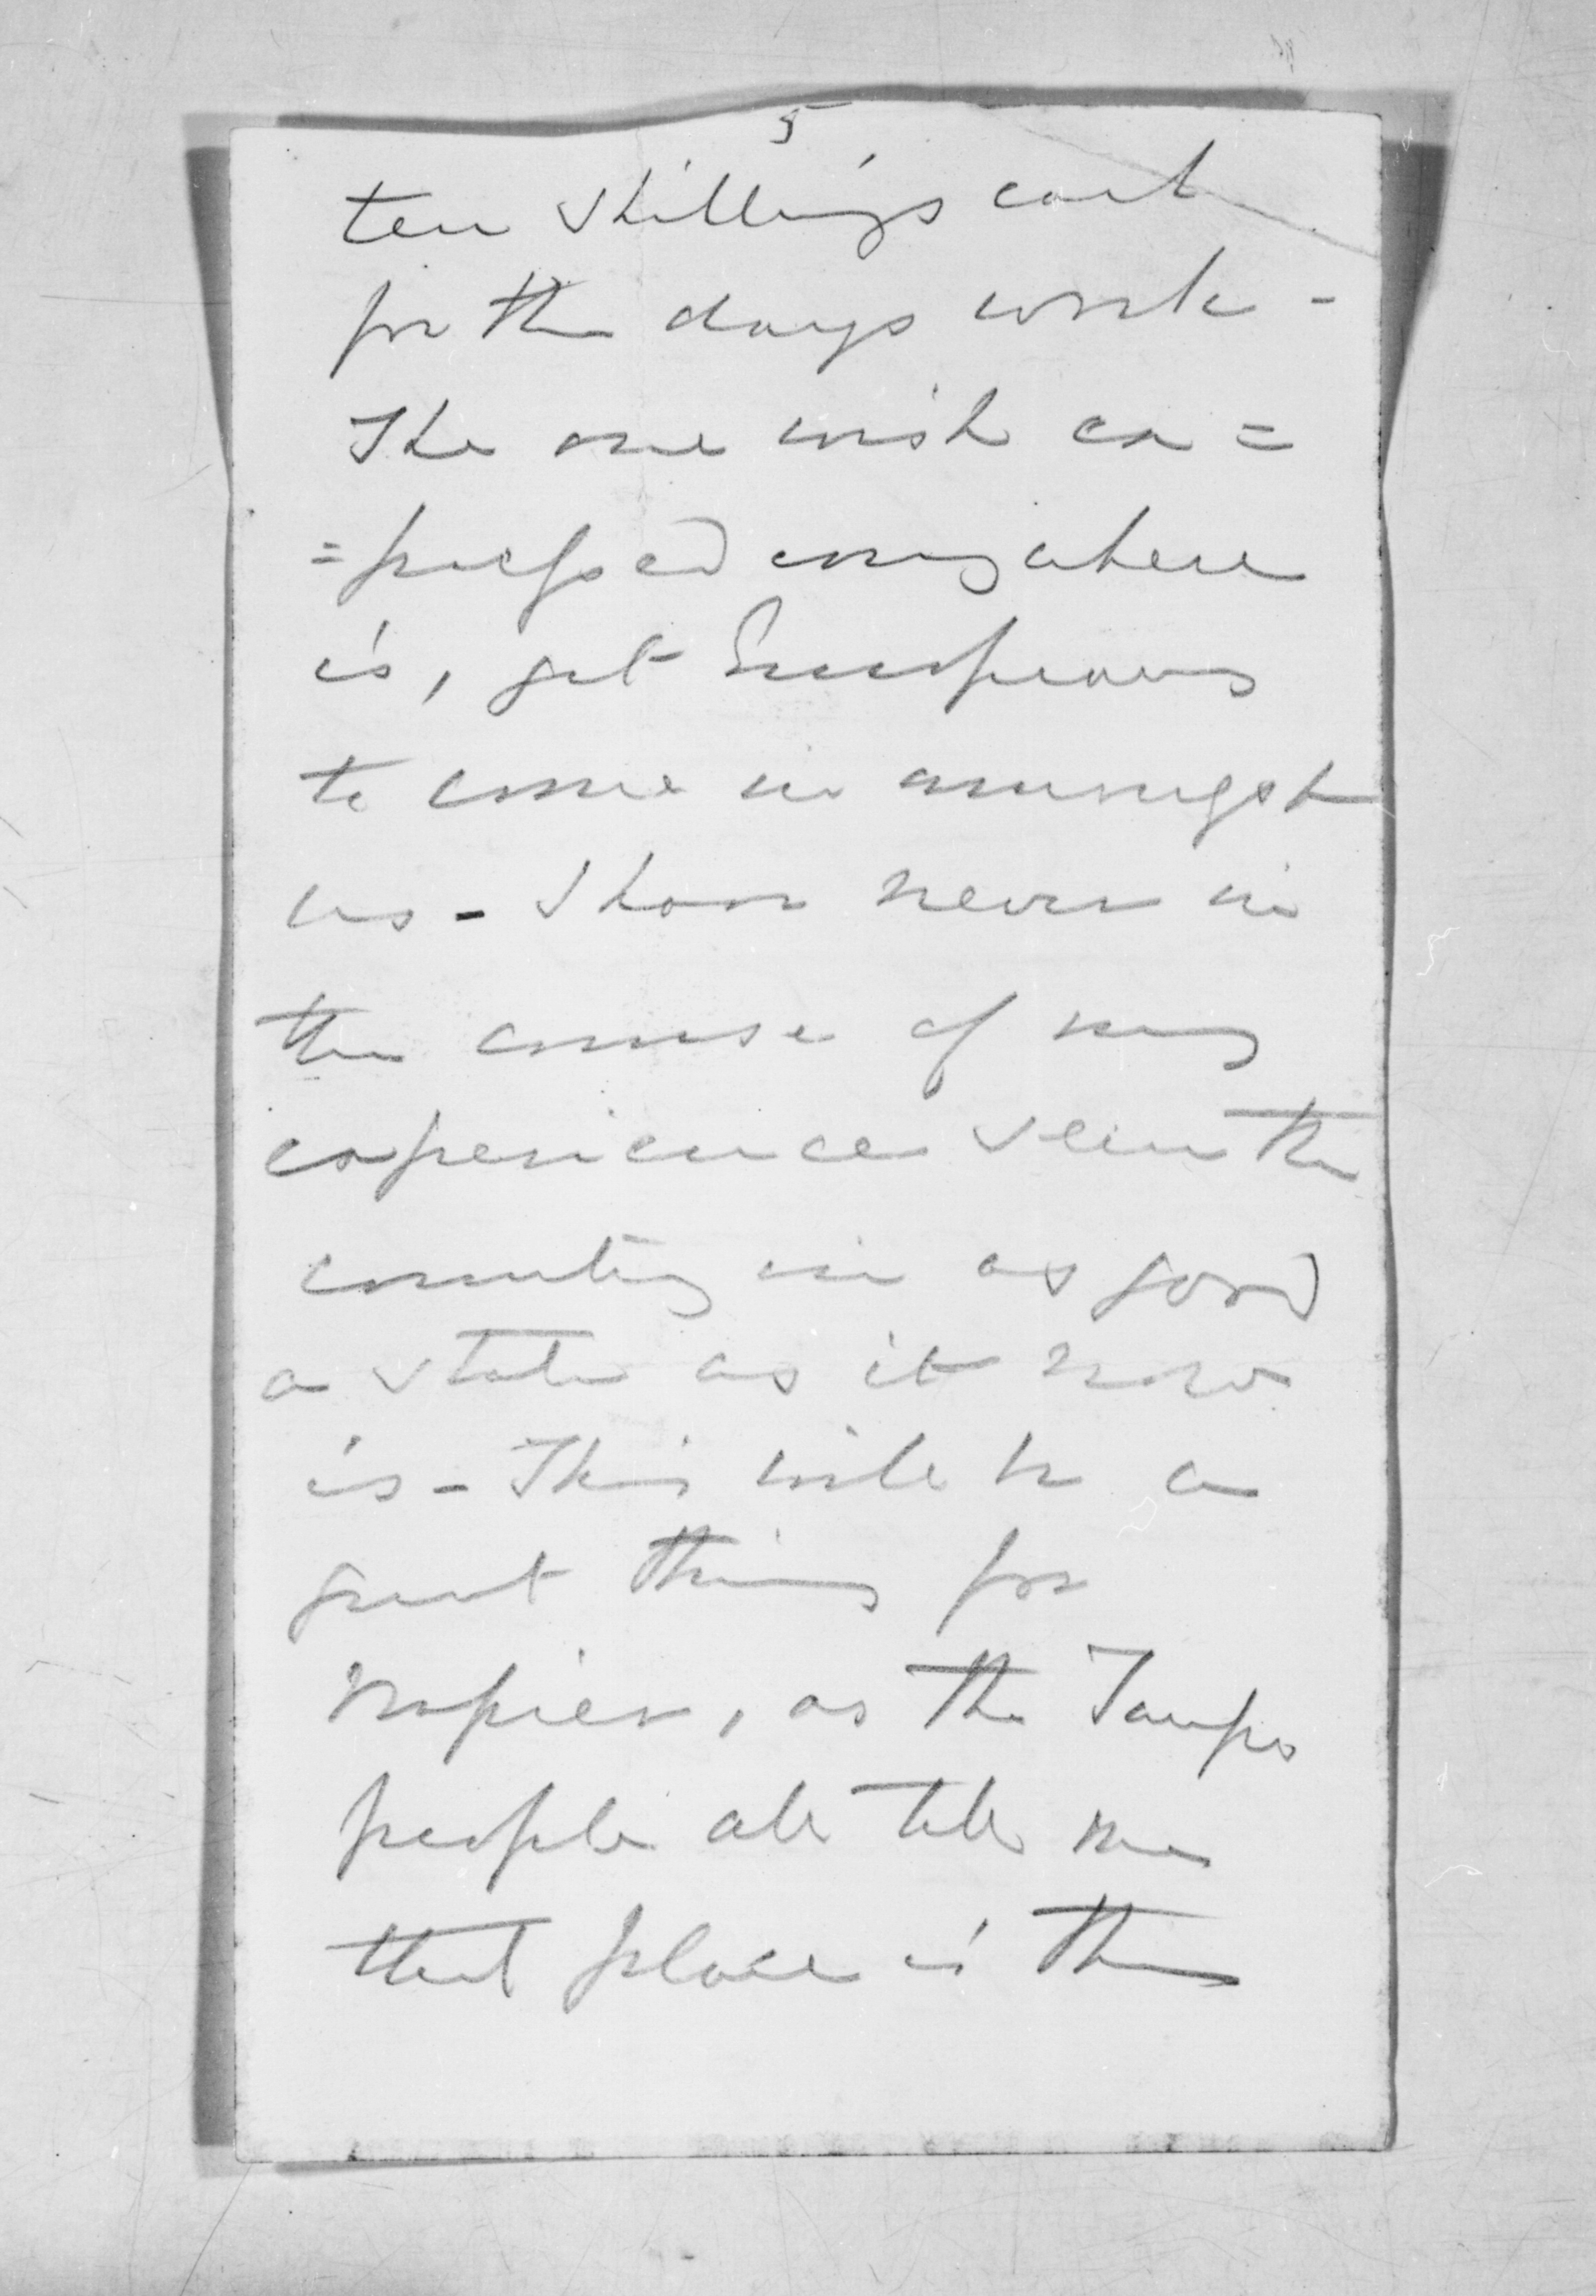 5
ten shillings each
for the days work -
The one wish ex=
=pressed everywhere
is, get Europeans
to come in amongst
us - I have never in
the course of my
experience seen the
country in as good
a state as it now
is - This will be a
great thing for
Napier, as the Taupo
people all tell me
that place is their